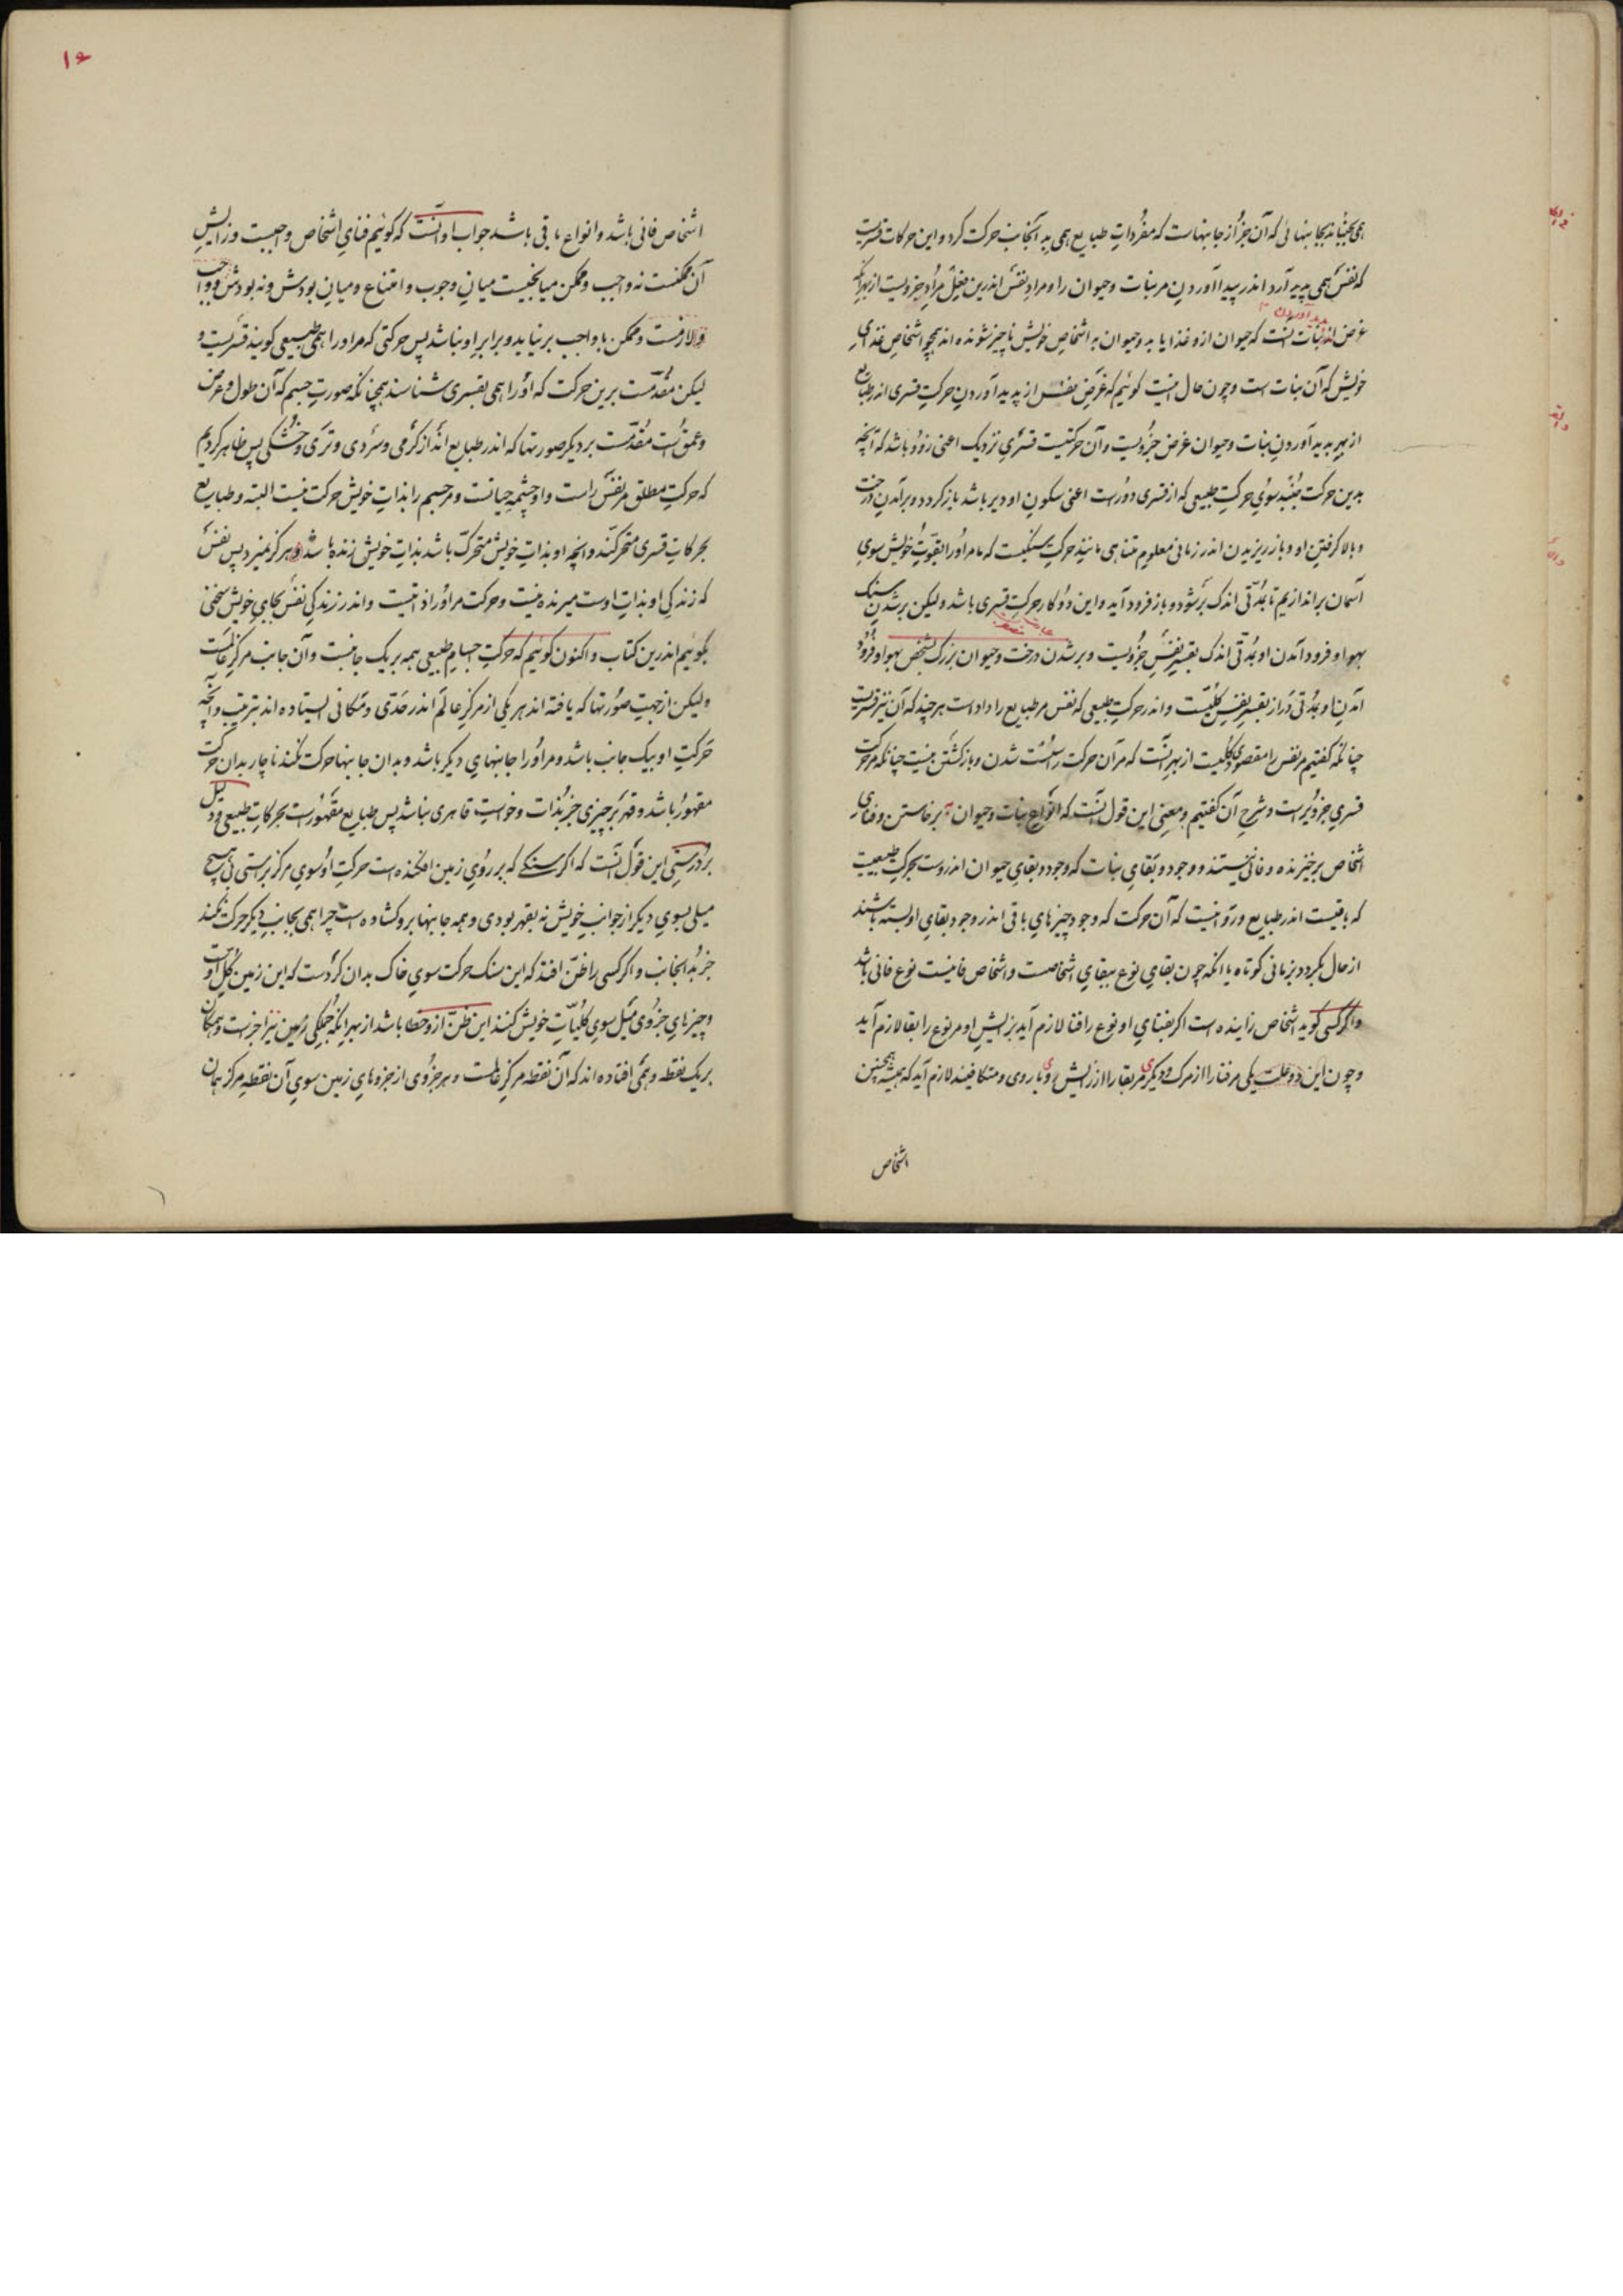 همی بجنباند بجانبهائی که آن جز از جانبهاست که مفردات طبایع همی بدآنجانب حرکت کرد و این حرکات قسریست
که نفس همی پدید آرد اندر پیدا آوردن مر نبات و حیوان را و مراد نفس اندرین فعل مراد جزویست از بهر آنکه
پدید آوردن
غرض اندر نبات آنست که حیوان ازو غذا یابد و حیوان به اشخاص خویش ناچیز شونده اند همچو اشخاص غذای
خویش که آن نبات است و چون حال اینست گوئیم که غرض نفس از پدید آوردن حرکت قسری اندر طبایع
از بهر پدید آوردن نبات و حیوان غرض جزویست و آن حرکتیست قسری نزدیک اعنی زود باشد که آنچه
بدین حرکت بجنبد سوی حرکت طبیعی که از قسری دورست اعنی سکون او دیر باشد باز گردد و برآمدن درخت
و بالا گرفتن او و باز ریزیدن اندر زمانی معلوم متناهی مانند حرکت سنگیست که ما مر او را بقوت خویش سوی
آسمان بر اندازیم تا بمدتی اندک بر شود و باز فرود آید و این دو کار حرکت قسری باشد ولیکن بر شدن سنگ
بهوا و فرود آمدن او بمدتی اندک بقسر نفس جزویست و بر شدن درخت و حیوان بزرگ شخص بهوا و فرود
آمدن او بمدتی دراز بقسر نفس کلیست و اندر حرکت طبیعی که نفس مر طبایع را داده است هر چند که آن نیز قسریست
چنانکه گفتیم مر نفس را مقصودی کلیست از بهر آنست که مر آن حرکت را سست شدن و بازگشتن نیست چنانکه مر حرکت
قسری جزوی راست و شرح آن گفتیم و معنی این قول آنست که انواع نبات و حیوان بر خاستن و فنای
اشخاص برخیزنده و فانی نیستند و وجود و بقای نبات که وجود و بقای حیوان اندروست بحرکت طبیعیست
که باقیست اندر طبایع و روا نیست که آن حرکت که وجود چیزهای باقی اندر وجود و بقای او بسته باشند
از حال بگردد بزمانی کوتاه یا آنکه چون بقای نوع ببقای اشخاصست و اشخاص فانیست نوع فانی باشد
و اگر کسی گوید اشخاص زاینده است اگر بفنای او نوع را فنا لازم آید بزایش او مر نوع را بقا لازم آید
و چون این دو علت یکی مر فنا را از مرگ و دیگری مر بقا را از زایش رویاروی و متکافیند لازم آید که همیشه همچنین
اشخاص
۱۶
اشخاص فانی باشد و انواع باقی باشد جواب او آنست که گوئیم فنای اشخاص واجبست و زایش
آن ممکنست نه واجب و ممکن میانجیست میان وجوب و امتناع و میان بودش و نه بودش و واجب
و لازمست و ممکن با واجب بر نیاید و برابر او نباشد پس حرکتی که مر او را همی طبیعی گویند قسریست و
لیکن مقدمست برین حرکت که او را همی بقسری شناسند همچنانکه صورت جسم که آن طول و عرض
و عمق است مقدمست بر دیگر صورتها که اندر طبایع اند از گرمی و سردی و تری و خشکی پس ظاهر کردیم
که حرکت مطلق مر نفس راست و او چشمه حیاتست و مر جسم را بذات خویش حرکت نیست البته و طبایع
بحرکات قسری متحرکند و آنچه او بذات خویش متحرک باشد بذات خویش زنده باشد و هرگز نمیرد پس نفس
که زندگی او بذات اوست میرنده نیست و حرکت مر او را ذاتیست و اندر زندگی نفس بجای خویش سخن
بگوئیم اندرین کتاب و اکنون گوئیم که حرکت اجسام طبیعی همه بر یک جانبست و آن جانب مرکز عالمست
ولیکن از جهت صورتها که یافته اند هر یکی از مرکز عالم اندر حدی و مکانی ایستاده اند بترتیب و آنچه
حرکت او بیک جانب باشد و مر او را جانبهای دیگر باشد و بدان جانبها حرکت نکند ناچار بدان حرکت
مقهور باشد و قهر بر چیزی جز بذات و خواست قاهری نباشد پس طبایع مقهورست بحرکات طبیعی و دلیل
بر درستی این قول آنست که اگر سنگی که بر روی زمین افکنده است حرکت او سوی مرکز براستی بی هیچ
میلی بسوی دیگر از جوانب خویش نه بقهر بودی و همه جانبها برو گشاده است چرا همی بجانب دیگر حرکت نکند
جز بدانجانب و اگر کسی را ظن افتد که این سنگ حرکت سوی خاک بدان کردست که این زمین کل اوست
و چیزهای جزوی میل سوی کلیات خویش کنند این ظن ازو خطا باشد از بهر آنکه جملگی زمین نیز اجزاست و همگان
بر یک نقطه وهمی افتاده اند که آن نقطه مرکز عالمست و هر جزوی از جزوهای زمین سوی آن نقطه مرکز همان